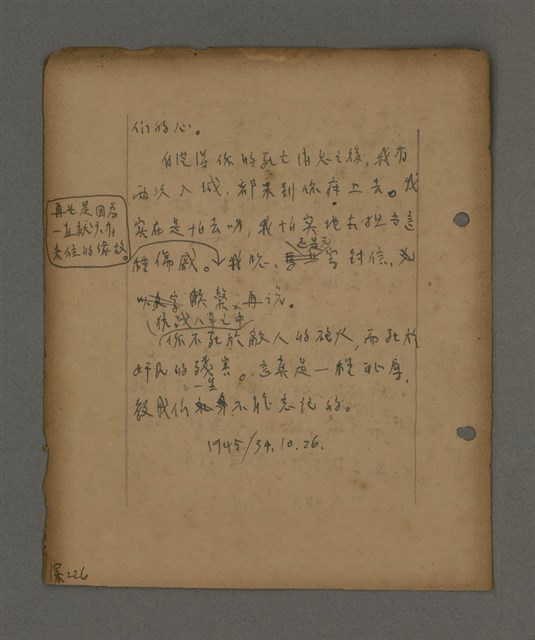 们的心。
自從得你的死亡消息之後，我有
兩次入城，都未到你府上去。我
實在是怕去呀，我怕实地去担当這
種傷感。我想，還是寫封信，
再說。
抗战八年之中
你不死於敵人的砲火，而死於
奸民的殘害。這真是一種恥辱，
一生
教我們不能忘記的。
1945/34.10.26.
再也是因為
一直缺少
來往的緣故。
深226